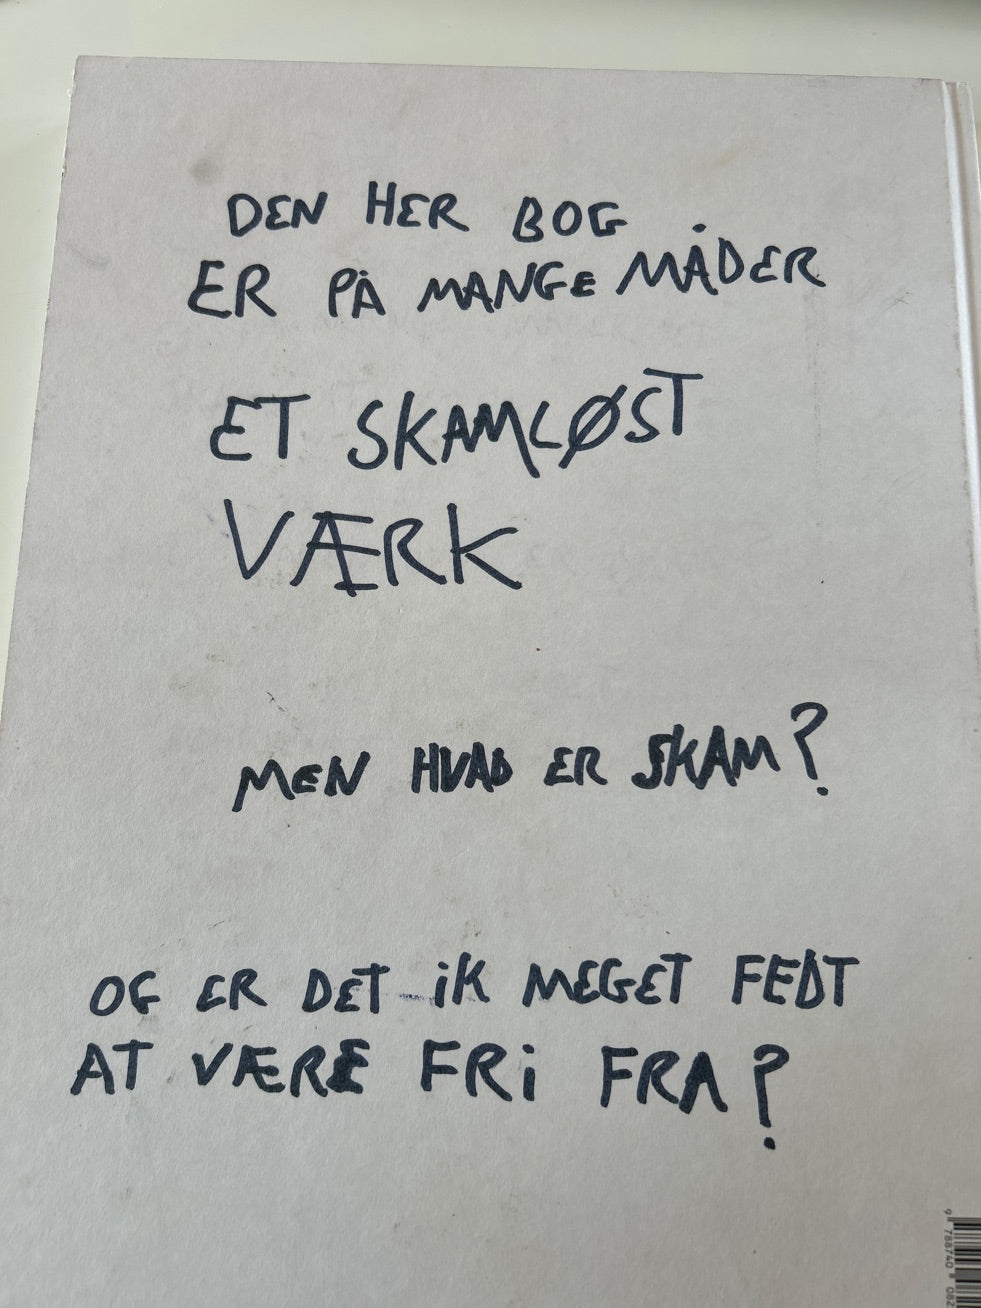 DEN HER BOG
ER PÅ MANGE MÅDER
ET SKAMLØST
VÆRK
MEN HVAD ER SKAM?
OG ER DET iK MEGET FEDT
AT VÆRE FRi FRA?
9 788740 082